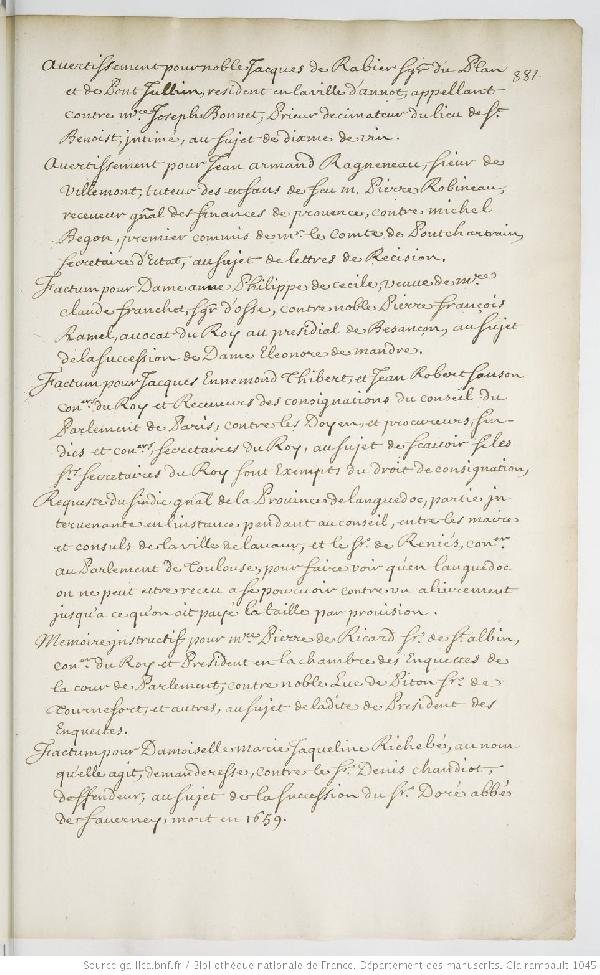 Avertissement pour noble Jacques de Rabier sgr du Plan
881
et de Pont Jullin, resident en la ville d'annot, appellant
contre mre Joseph Bonnet, Prieur decimateur du lieu de St
Benoist, intimé, au sujet de dixme de vin.
Avertissement pour Jean armand Ragneneau, sieur de
Villemont, tuteur des enfans de feu m. Pierre Robineau,
receveur gñal des finances de provence, contre michel
Begon, premier commis de mr le Comte de Pontchartrain,
secretaire d'Estat, au sujet de lettres de Recision.
Factum pour Dame anne Philippe de cecile, veuve de mre
claude franchet, sgr d'osse, contre noble Pierre françois
Ramel, avocat du Roy au presidial de Besançon, au sujet
de la succession de Dame Eleonore de mandre.
Factum pour Jacques Ennemond Thibert, et Jean Robert sanson
coners du Roy et Receveurs des consignations du conseil du
Parlement de Paris, contre les Doyen, et procureurs, sin-
dics et coners secretaires du Roy, au sujet de scavoir si les
srs secretaires du Roy sont Exempts du droit de consignation,
Requeste du sindic gñal de la Province de languedoc, partie in-
tervenante en l'instance, pendant au conseil, entre les maire
et consuls de la ville de lavaur, et le sr de Reniés, coner
au Parlement de Toulouse, pour faire voir qu'en languedoc
on ne peut estre receu a se pourvoir contre un alivrement
jusqu'a ce qu'on ait payé la taille par provision.
Memoire instructif pour mre Pierre de Ricard sr de St albin,
coner du Roy et President en la chambre des Enquestes de
la cour de Parlement, contre noble Luc de Piton sr de
Tournefort, et autres, au sujet de ladite de President des
Enquestes.
Factum pour Damoiselle marie Jaqueline Richebé, au nom
qu'elle agit, demanderesse, contre le sr Denis chandiot,
deffendeur, au sujet de la succession du sr Doré abbé
de faverney, mort en 1659.
Source gallica.bnf.fr / Bibliothèque nationale de France. Département des manuscrits. Clairambault 1045